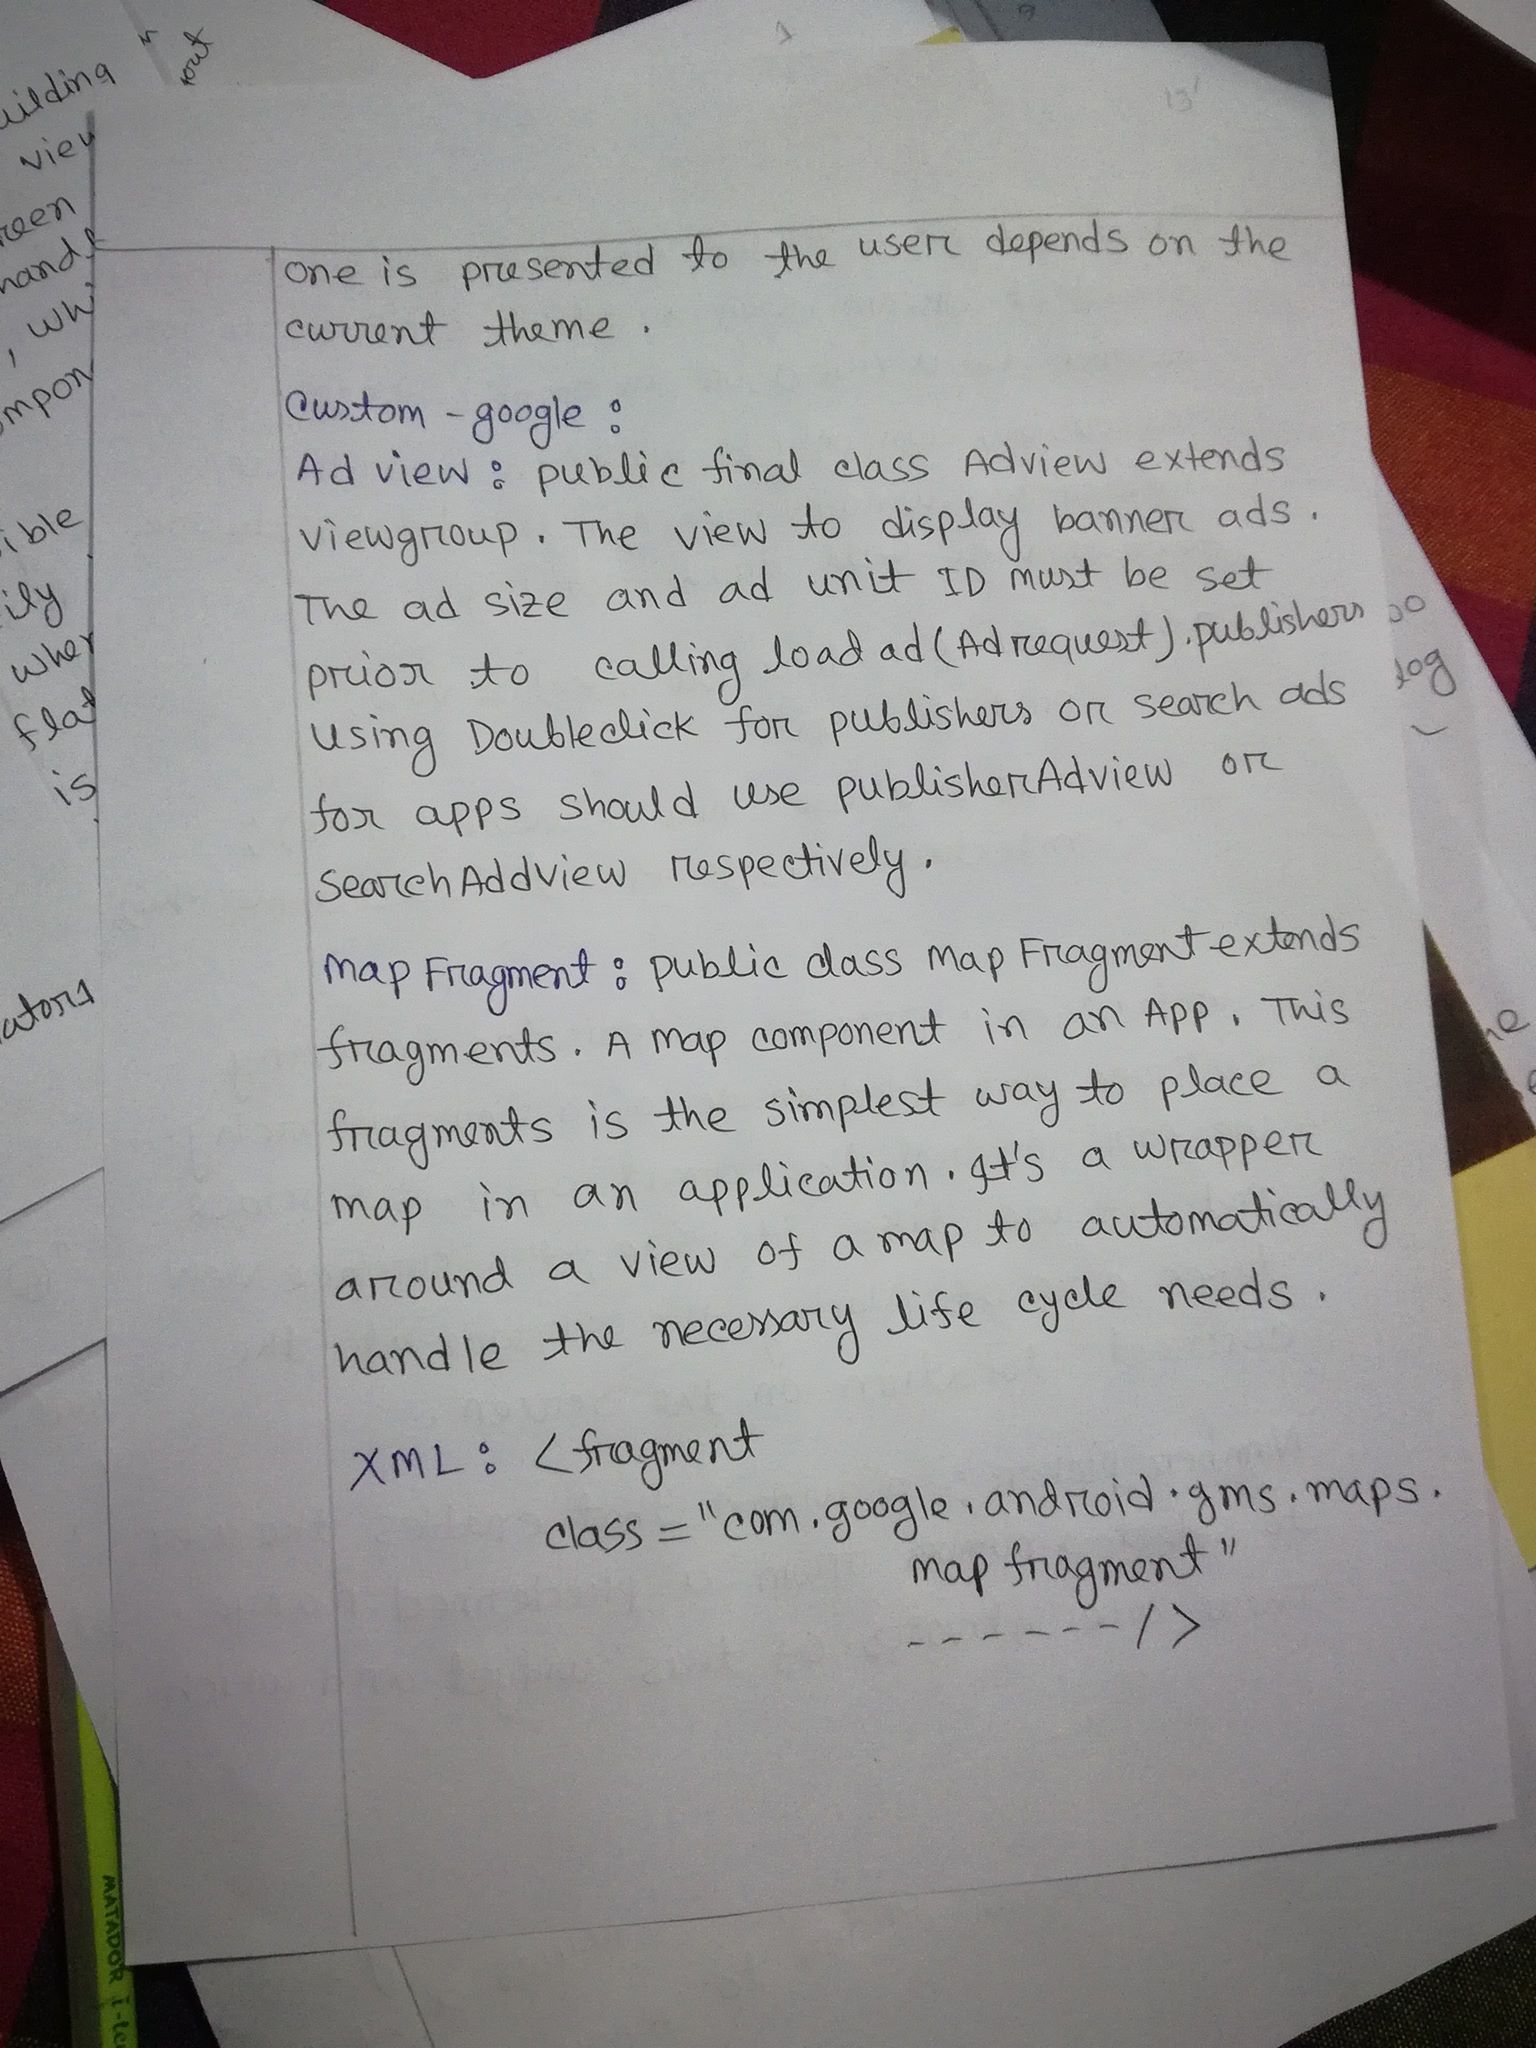 one is presented to the user depends on the
current theme.
Custom - google:
Ad view: public final class Adview extends
viewgroup. The view to display banner ads.
The ad size and ad unit ID must be set
prior to calling load ad (Ad request). publishers
using Doubleclick for publishers or search ads
for apps should use publisherAdview or
SearchAddView respectively.
Map Fragment: public class Map Fragment extends
fragments. A map component in an App. This
fragments is the simplest way to place a
map in an application. It's a wrapper
around a view of a map to automatically
handle the necessary life cycle needs.
XML: <fragment
class="com.google.android.gms.maps.
map fragment"
------/>
uilding
view
reen
hand
, whi
ompon
ible
ily
wher
flat
is
ators
out
13
log
MATADOR i-te